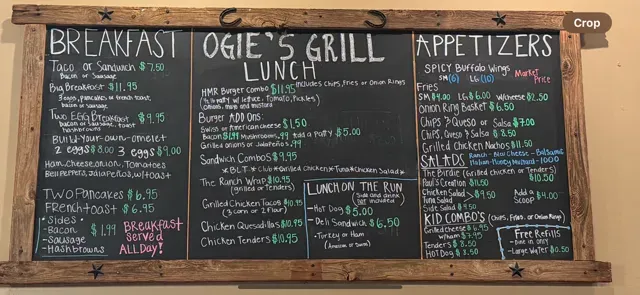 Crop
BREAKFAST
Taco or Sandwich $7.50
Bacon or Sausage
Big Breakfast $11.95
3 eggs, pancakes or french toast,
bacon or sausage
Two Egg Breakfast $9.95
bacon or sausage, toast
hashbrowns
Build-your-own-omelet
2 eggs $8.00 3 eggs $9.00
Ham, cheese, onion, Tomatoes
Bell Peppers, Jalapeños, w/toast
Two Pancakes $6.95
French toast $6.95
Sides
-Bacon
-Sausage
-Hashbrowns
$1.99
BREAKFAST
served
ALL DAY!
OGIE'S GRILL
LUNCH
HMR Burger Combo $11.95 Includes Chips, Fries or Onion Rings
(1/2 lb patty w/ lettuce, Tomato, Pickles,
onions, mayo and mustard
Burger ADD ONS:
Swiss or American cheese $1.50
Bacon $1.99 Mushrooms .99 add a patty $5.00
Grilled onions or Jalapeños .99
Sandwich Combos $9.95
*BLT* Club* Grilled Chicken* Tuna* Chicken Salad*
The Ranch Wrap $10.95
(grilled or Tenders)
Grilled Chicken Tacos $10.95
(3 corn or 2 flour)
Chicken Quesadillas $10.95
Chicken Tenders $10.95
LUNCH ON THE RUN
(Side and drink
NOT included)
-Hot Dog $5.00
-Deli Sandwich $6.50
-Turkey or Ham
(American or Swiss)
APPETIZERS
SPICY Buffalo Wings
SM (6) LG (10)
Market
Price
Fries
SM $4.00 LG $6.00 w/cheese $2.50
Onion Ring Basket $6.50
Chips & Queso or Salsa $7.00
Chips, Queso & Salsa $8.50
Grilled Chicken Nachos $11.50
SALADS
Ranch - Bleu Cheese - Balsamic
Italian - Honey Mustard - 1000
The Birdie (Grilled chicken or Tenders)
$10.50
Paul's Creation $11.50
Chicken Salad
Tuna Salad
$9.50
Side Salad $4.50
Add a
Scoop
$4.00
KID COMBO'S (chips, Fries, or Onion Rings)
Grilled Cheese $6.95
w/ham $7.95
Tenders $8.50
HOT DOG $3.50
Free Refills
-Dine in only
-Large Water $0.50